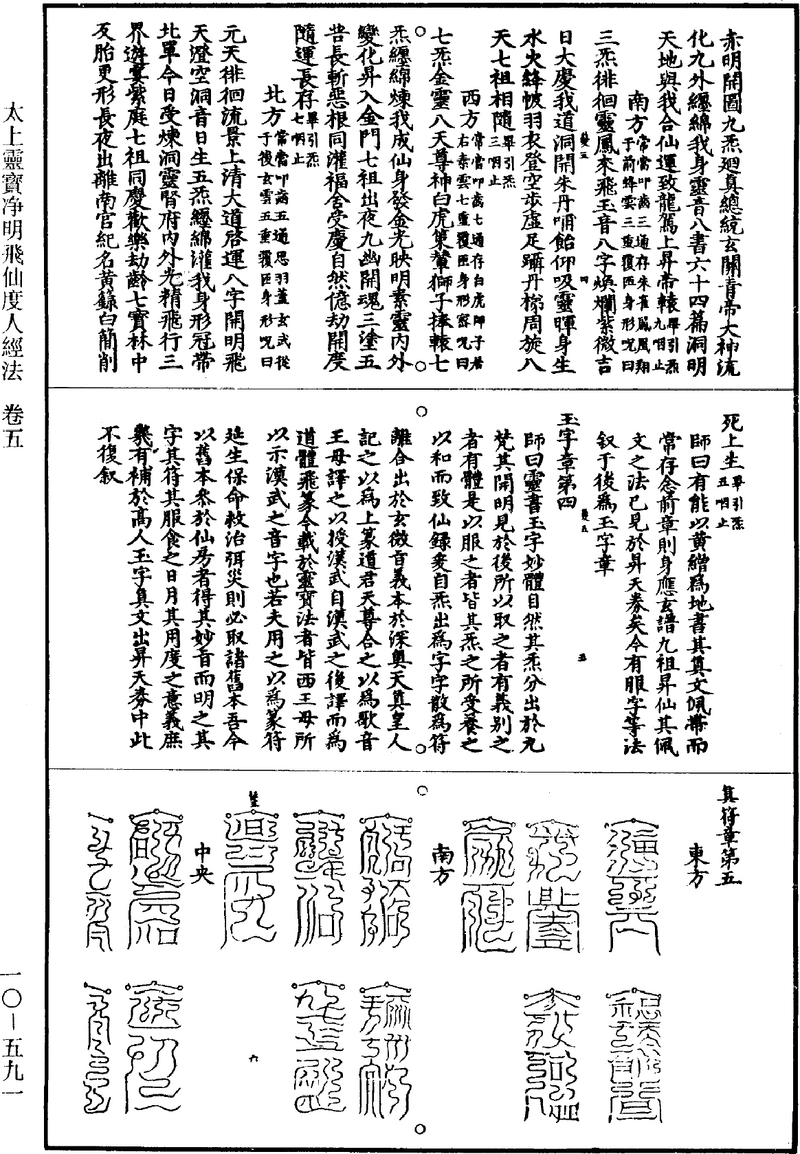 赤明開圖九炁迴真總統玄關青帝大神流
化九外纏綿我身靈音八書六十四篇洞明
天地與我合仙運致龍駕上昇帝轅畢引炁九咽止
南方常當叩齒三通存朱雀鳳凰翔于前絳雲三重覆匝身形呪曰
三炁徘徊靈鳳來飛玉音八字煥爛紫微吉
日大慶我道洞開朱丹哺飴仰吸靈暉身生
水火絳帔羽衣登空步虛足躡丹梯周旋八
天七祖相隨畢引炁三咽止
西方常當叩齒七通存白虎師子若右素雲七重覆匝身形密呪曰
七炁金靈八天尊神白虎策輦獅子捧轅七
炁纏綿煉我成仙身發金光映明素靈內外
變化昇入金門七祖出夜九幽開魂三塗五
苦長斬惡根同灌福舍受慶自然億劫開度
隨運長存畢引炁七咽止
北方常當叩齒五通思羽蓋玄武從于後玄雲五重覆匝身形呪曰
元天徘徊流景上清大道啓運八字開明飛
天澄空洞音日生五炁纏綿灌我身形冠帶
北單今日受煉洞靈腎府內外光精飛行三
界遊宴紫庭七祖同慶歡樂劫齡七寶林中
反胎更形長夜出離南宮紀名黃籙白簡削
死上生畢引炁五咽止
師曰有能以黃繒爲地書其真文佩帶而
常存念前章則身應玄譜九祖昇仙其佩
文之法已見於昇天券矣今有服字等法
叙于後爲玉字章
玉字章第四
師曰靈書玉字妙體自然其炁分出於九
梵其開明見於後所以取之者有義別之
者有體是以服之者皆其炁之所受養之
以和而致仙錄爰自炁出爲字字散爲符
離合出於玄微音義本於深奧天真皇人
記之以爲上篆道君天尊合之以爲歌音
王母譯之以授漢武自漢武之後譯而爲
道體飛篆今載於靈寶法者皆西王母所
以示漢武之音字也若夫用之以爲篆符
延生保命救治弭災則必取諸舊本吾今
以舊本參於仙房者得其妙旨而明之其
字其符其服食之日月其用度之意義庶
幾有補於高人玉字真文出昇天券中此
不復叙
真符章第五
東方
南方
中央
太上靈寶净明飛仙度人經法 卷五
一〇—五九一